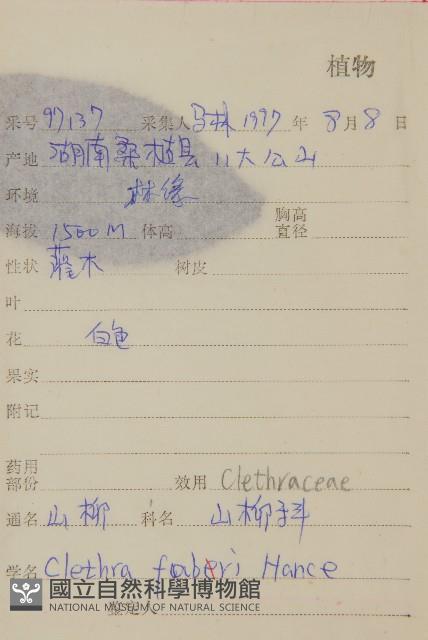 植物
采号 97137 采集人 马林 1997 年 8 月 8 日
产地 湖南桑植县 八大公山
环境 林缘
胸高
海拔 1500 M 体高 直径
性状 灌木 树皮
叶
花 白色
果实
附记
药用
部份 效用 Clethraceae
通名 山柳 科名 山柳科
学名 Clethra faberi Hance
國立自然科學博物館
NATIONAL MUSEUM OF NATURAL SCIENCE